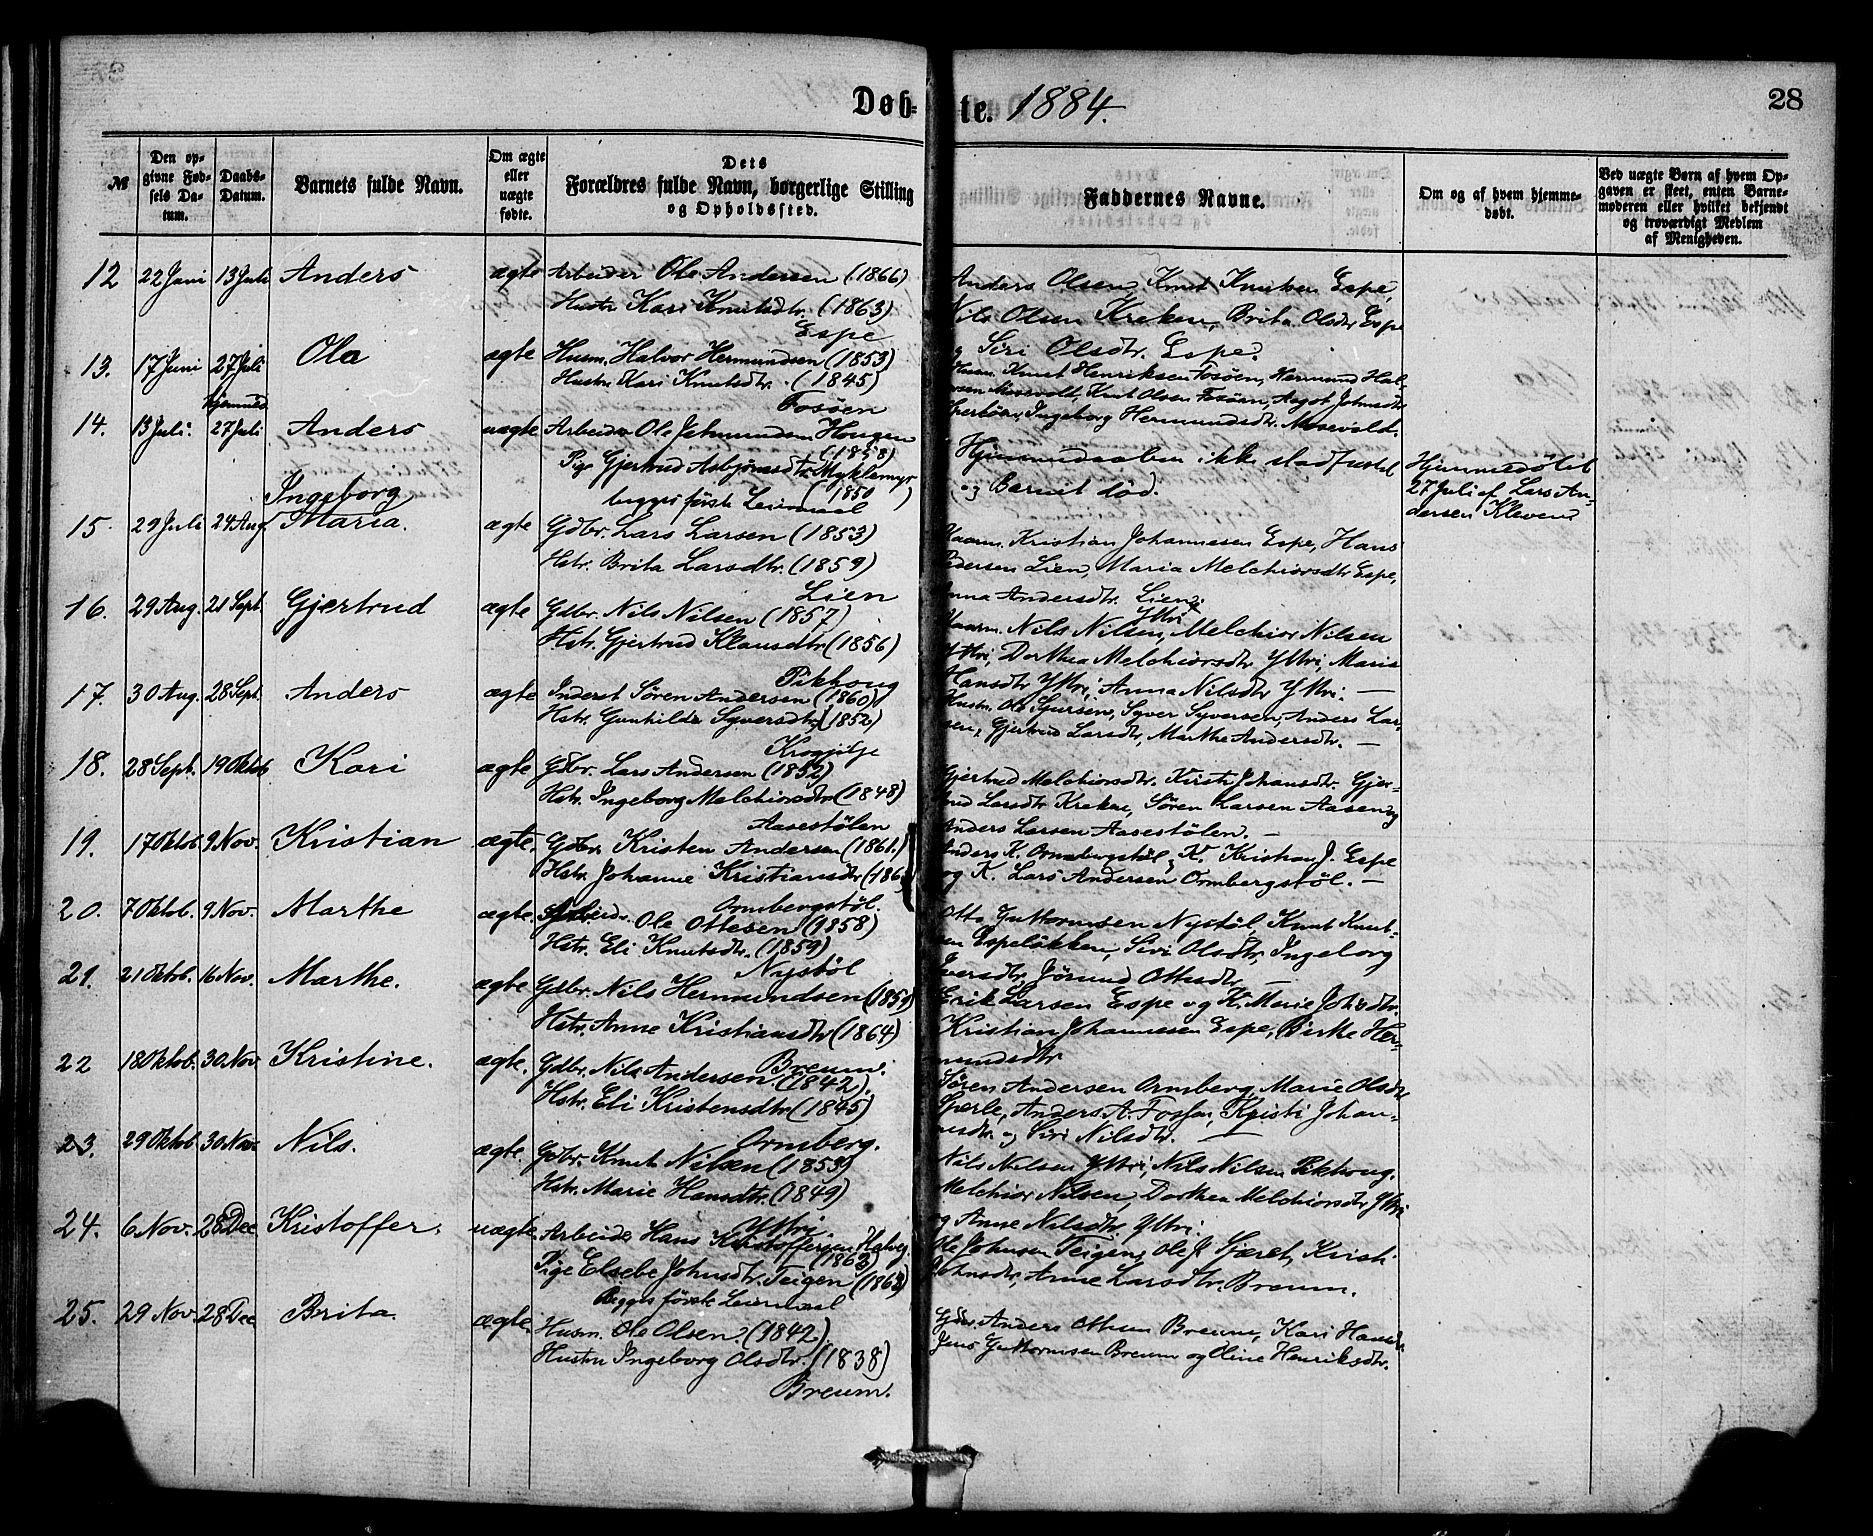 Døb- te. 1884. 28
№ Den opgivne Fødsels Datum. Daabs-Datum. Barnets fulde Navn. Om ægte eller uægte fødte. Dets Forældres fulde Navn, borgerlige Stilling og Opholdssted. Faddernes Navne. Om og af hvem hjemmedøbt. Ved uægte Børn af hvem Opgaven er skeet, enten Barnemoderen eller hvilket bekjendt og troværdigt Medlem af Menigheden.
12 22 Juni 13 Juli Anders ægte Arbeider Ole Andersen (1866)
Hustr. Kari Knutsdtr. (1863)
Espe
Anders Olsen, Knut Knutsen Espe,
Nils Olsen Kreken, Brita Olsdtr Espe
og Siri Olsdtr. Espe.
13. 17 Juni 27 Juli Ola ægte Husm. Halvor Hermundsen (1853)
Hustr. Kari Knutsdtr. (1845)
Fosøen
Husm. Knut Henriksen Fosøen, Hermund Hal-
vorsen Mosevold, Knut Olsen Fosøen, Aagot Johnsdtr
Ingeborg Hermundsdtr. Mosevold.
14. 13 Juli. hjemmed. 27 Juli Anders uægte Arbeider Ole Jetmundsen Hougen
(1858)
Pige Gjertrud Asbjørnsdtr. Myklemyr
(1850)
begges første Leiermaal
Hjemmedaaben ikke stadfæstet
og Barnet død.
Hjemmedøbt
27 Juli af Lars An-
dersen Kleven
15. 29 Juli 24 Aug. Ingeborg
Maria. ægte Gdbr. Lars Larsen (1853)
Hstr. Brita Larsdtr. (1859)
Lien
Kaarm. Kristian Johannesen Espe, Hans
Pedersen Lien, Maria Melchiorsdtr Espe,
Anna Andersdtr. Lien.
16. 29 Aug. 21 Sept. Gjertrud ægte Gdbr. Nils Nilsen (1857)
Hstr. Gjertrud Klausdtr (1856)
Pikhoug
Yttri
Kaarm. Nils Nilsen, Melchior Nilsen
Yttri, Dorthea Melchiorsdtr Yttri, Maria
Hansdtr Yttri, Anna Nilsdtr Yttri. —
17. 30 Aug. 28 Sept. Anders ægte Inderst Søren Andersen (1860)
Hstr. Gunhilde Syversdtr. (1852)
Husm. Ole Sjursen, Syver Syversen, Anders Lar-
sen, Gjertrud Larsdtr, Marthe Andersdtr. —
18. 28 Sept. 19 Oktob Kari ægte Gdbr. Lars Andersen (1852)
Hstr. Ingeborg Melchiorsdtr (1848)
Aasestølen
Gjertrud Melchiorsdtr. Kirsti Johansdtr. Gjer-
trud Larsdtr Kreken, Søren Larsen Aasen og
Anders Larsen Aasestølen. —
19. 17 Oktob. 9 Nov. Kristian ægte. Gdbr. Kristen Andersen (1861.)
Hstr. Johanne Kristiansdtr
Ormbergstøl.
Anders K. Ormbergstøl, K. Kristian J. Espe
og K. Lars Andersen Ormbergstøl. —
20. 7 Oktob. 9 Nov. Marthe ægte. Arbeidr. Ole Ottesen (1858)
Hstr. Eli Knutsdtr. (1859)
Nystøl
Otto Guttormsen Nystøl, Knut Knut-
sen Espeløkken, Siri Olsdtr, Ingeborg
Iversdtr, Jørund Ottesdtr. —
21. 21 Oktob. 16 Nov. Marthe. ægte Gdbr. Nils Hermundsen (1859)
Hstr. Anne Kristiansdtr (1864)
Breum.
Erik Larsen Espe og K. Marie Johsdtr.
Kristian Johannesen Espe, Birthe Her-
mundsdtr
22 18 Oktob. 30 Nov. Kristine. ægte. Gdbr. Nils Andersen. (1842)
Hstr. Eli Kristensdtr (1845)
Ormberg.
Søren Andersen Ormberg, Marie Olsdtr
Sperle, Anders A. Fossen, Kristi Johan-
nesdtr. og Siri Nilsdtr. —
23. 29 Oktob. 30 Nov. Nils. ægte. Gdbr. Knut Nilsen (1853)
Hstr. Marie Hansdtr. (1849)
Yttri
Nils Nilsen Yttri, Nils Nilsen Pikhoug.
Melchior Nilsen, Dorthea Melchiorsdtr Yttri
og Anne Nilsdtr Yttri.
24. 6 Nov. 28 Dec Kristoffer. uægte. Arbeider Hans Kristoffersen
(1863)
Pige Elsebe Johnsdtr. Teigen (1862)
Begges første Leiermaal
Ole Johnsen Teigen, Ole J Sjæret, Kristi
Johnsdtr, Anne Larsdtr. Breum.
25. 29 Nov. 28 Dec Brita. ægte. Husm. Ole Olsen. (1842)
Hustru Ingeborg Olsdtr. (1838)
Breum.
Gdbr. Anders Ottesen Breum, Kari Hansdtr.
Jens Guttormsen Breum og Oline Henriksdtr.